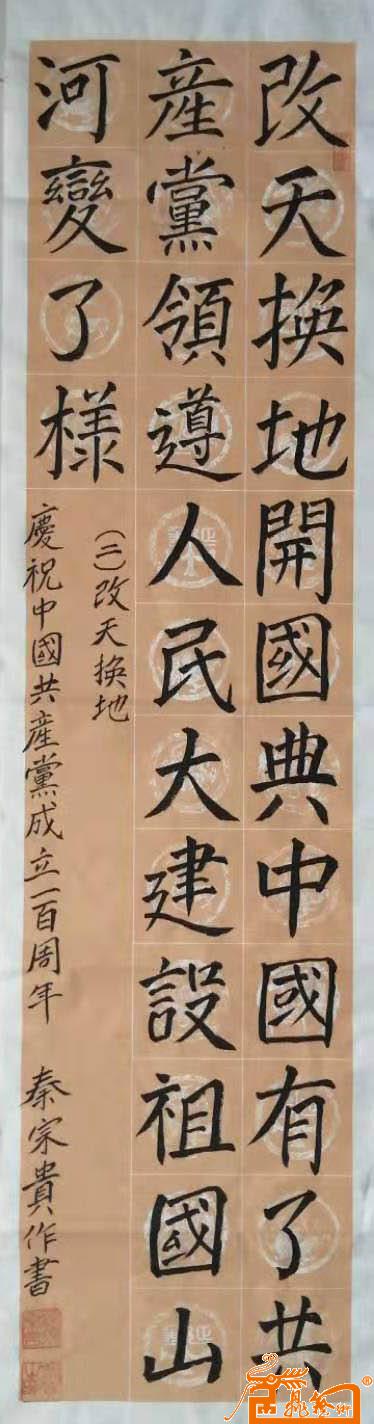 改天換地開國典中國有了共
産黨領導人民大建設祖國山
河變了樣
(二)改天换地
慶祝中國共産黨成立一百周年 秦宗貴作書